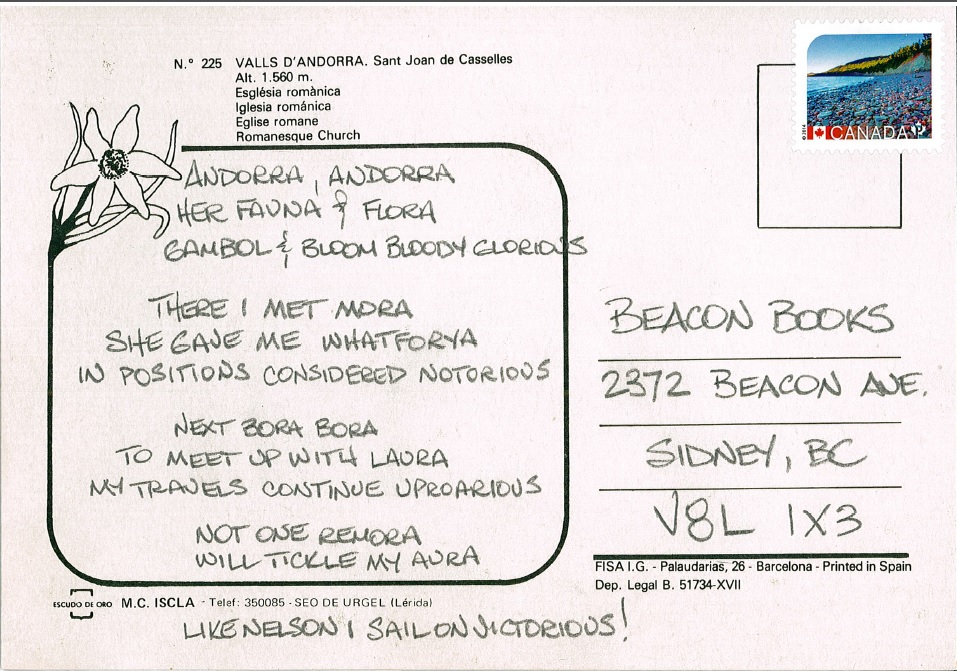 N.° 225 VALLS D'ANDORRA. Sant Joan de Casselles
Alt. 1.560 m.
Església romànica
Iglesia románica
Eglise romane
Romanesque Church
CANADA P
ANDORRA, ANDORRA
HER FAUNA & FLORA
GAMBOL & BLOOM BLOODY GLORIOUS
THERE I MET MORA
SHE GAVE ME WHATFORYA
IN POSITIONS CONSIDERED NOTORIOUS
NEXT BORA BORA
TO MEET UP WITH LAURA
MY TRAVELS CONTINUE UPROARIOUS
NOT ONE REMORA
WILL TICKLE MY AURA
LIKE NELSON I SAIL ON VICTORIOUS!
BEACON BOOKS
2372 BEACON AVE.
SIDNEY, BC
V8L 1X3
FISA I.G. - Palaudarias, 26 - Barcelona - Printed in Spain
Dep. Legal B. 51734-XVII
ESCUDO DE ORO M.C. ISCLA - Telef: 350085 - SEO DE URGEL (Lérida)